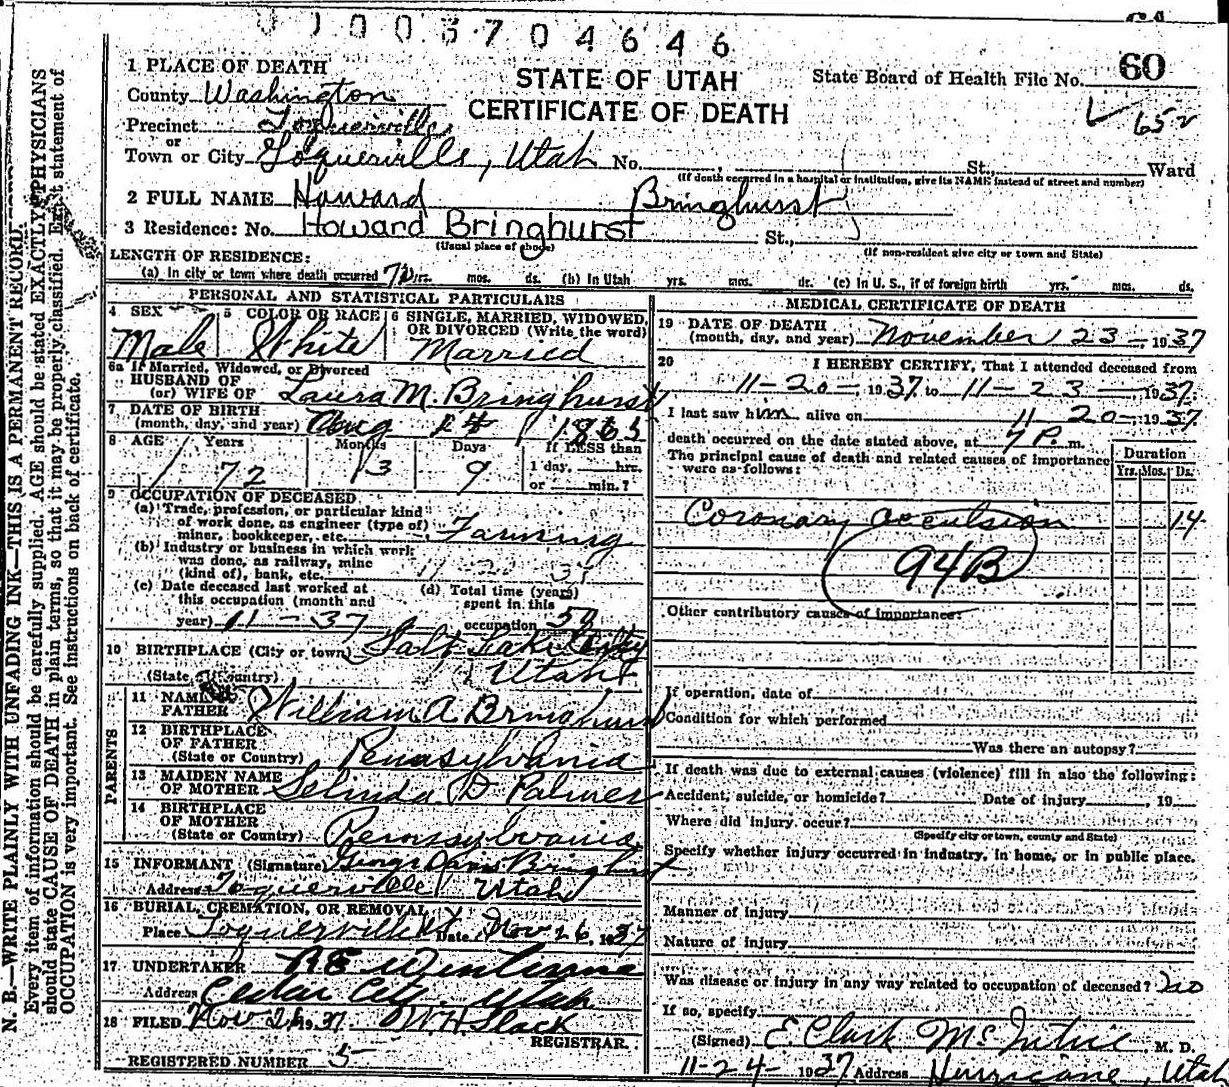 0 0 0 3 7 0 4 6 4 6
STATE OF UTAH
CERTIFICATE OF DEATH
State Board of Health File No. 60
652
1 PLACE OF DEATH
County Washington
Precinct Toquerville
or
Town or City Toquerville, Utah No. St., Ward
(If death occurred in a hospital or institution, give its NAME instead of street and number)
2 FULL NAME Howard Bringhurst
3 Residence: No. Howard Bringhurst St.,
(Usual place of abode) (If non-resident give city or town and State)
LENGTH OF RESIDENCE:
(a) In city or town where death occurred 72 yrs. mos. ds. (b) In Utah yrs. mos. ds. (c) In U. S., if of foreign birth yrs. mos. ds.
PERSONAL AND STATISTICAL PARTICULARS
4 SEX 5 COLOR OR RACE 6 SINGLE, MARRIED, WIDOWED, OR DIVORCED (Write the word)
Male White Married
6a If Married, Widowed, or Divorced
HUSBAND OF
(or) WIFE OF Laura M. Bringhurst
7 DATE OF BIRTH
(month, day, and year) Aug 14 1865
8 AGE Years Months Days If LESS than
72 3 9 1 day, hrs.
or min.?
9 OCCUPATION OF DECEASED
(a) Trade, profession, or particular kind
of work done, as engineer (type of)
miner, bookkeeper, etc. Farming
(b) Industry or business in which work
was done, as railway, mine
(kind of), bank, etc.
(c) Date deceased last worked at
this occupation (month and
year) 11 - 37
(d) Total time (years)
spent in this
occupation 50
10 BIRTHPLACE (City or town) Salt Lake City
(State or Country) Utah
PARENTS
11 NAME
FATHER William A Bringhurst
12 BIRTHPLACE
OF FATHER
(State or Country) Pennsylvania
13 MAIDEN NAME
OF MOTHER Selinda D Palmer
14 BIRTHPLACE
OF MOTHER
(State or Country) Pennsylvania
15 INFORMANT (Signature) George Bringhurst
Address Toquerville Utah
16 BURIAL, CREMATION, OR REMOVAL
Place Toquerville Ut Date Nov 26, 1937
17 UNDERTAKER
Address Cedar City, Utah
18 FILED Nov 26, 37 W. H. Slack
REGISTRAR.
REGISTERED NUMBER 5
MEDICAL CERTIFICATE OF DEATH
19 DATE OF DEATH
(month, day, and year) November 23 - 1937
20 I HEREBY CERTIFY, That I attended deceased from
11-20-, 1937 to 11-23-, 1937.
I last saw him alive on 11-20-, 1937
death occurred on the date stated above, at 7 P. m.
The principal cause of death and related causes of importance
were as follows:
Duration
Yrs. Mos. Ds.
Coronary occulsion 14
94B
Other contributory causes of importance:
If operation, date of
Condition for which performed
Was there an autopsy?
If death was due to external causes (violence) fill in also the following:
Accident, suicide, or homicide? Date of injury , 19
Where did injury occur?
(Specify city or town, county and State)
Specify whether injury occurred in industry, in home, or in public place.
Manner of injury
Nature of injury
Was disease or injury in any way related to occupation of deceased? no
If so, specify
(Signed) E. Clark McIntire, M. D.
11-24- 1937 Address Hurricane, Utah
N. B.—WRITE PLAINLY WITH UNFADING INK—THIS IS A PERMANENT RECORD.
Every item of information should be carefully supplied. AGE should be stated EXACTLY. PHYSICIANS
should state CAUSE OF DEATH in plain terms, so that it may be properly classified. Exact statement of
OCCUPATION is very important. See instructions on back of certificate.